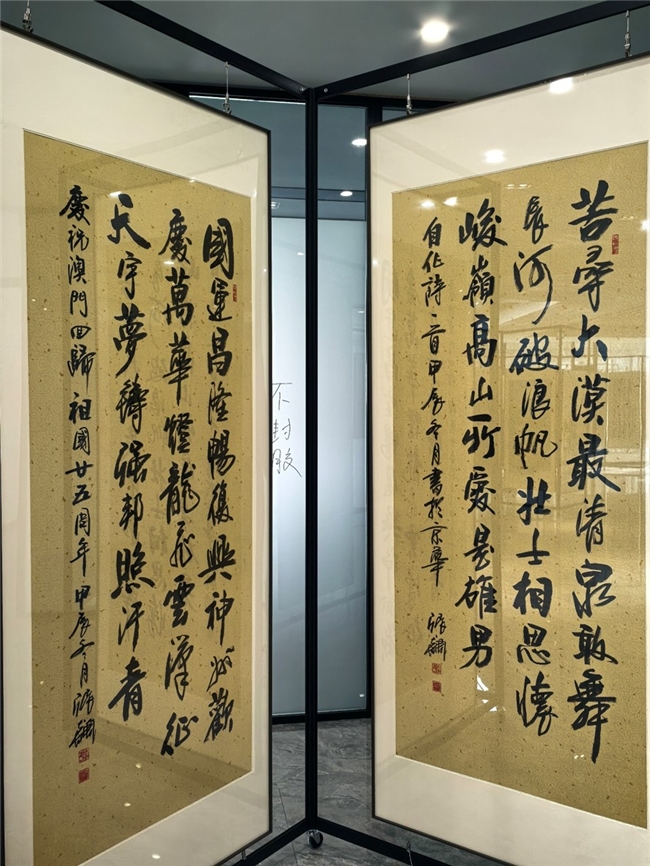 苦尋大漠最清泉敢舞
長河破浪帆壮士相思懷
峻嶺高山所愛是雄男
自作詩一首甲辰冬月書於京華
國運昌隆暢復興神州歡
慶萬華燈龍飛雲漢征
天宇夢鑄强邦照汗青
慶祝澳門回歸祖國廿五周年甲辰冬月
不封胶